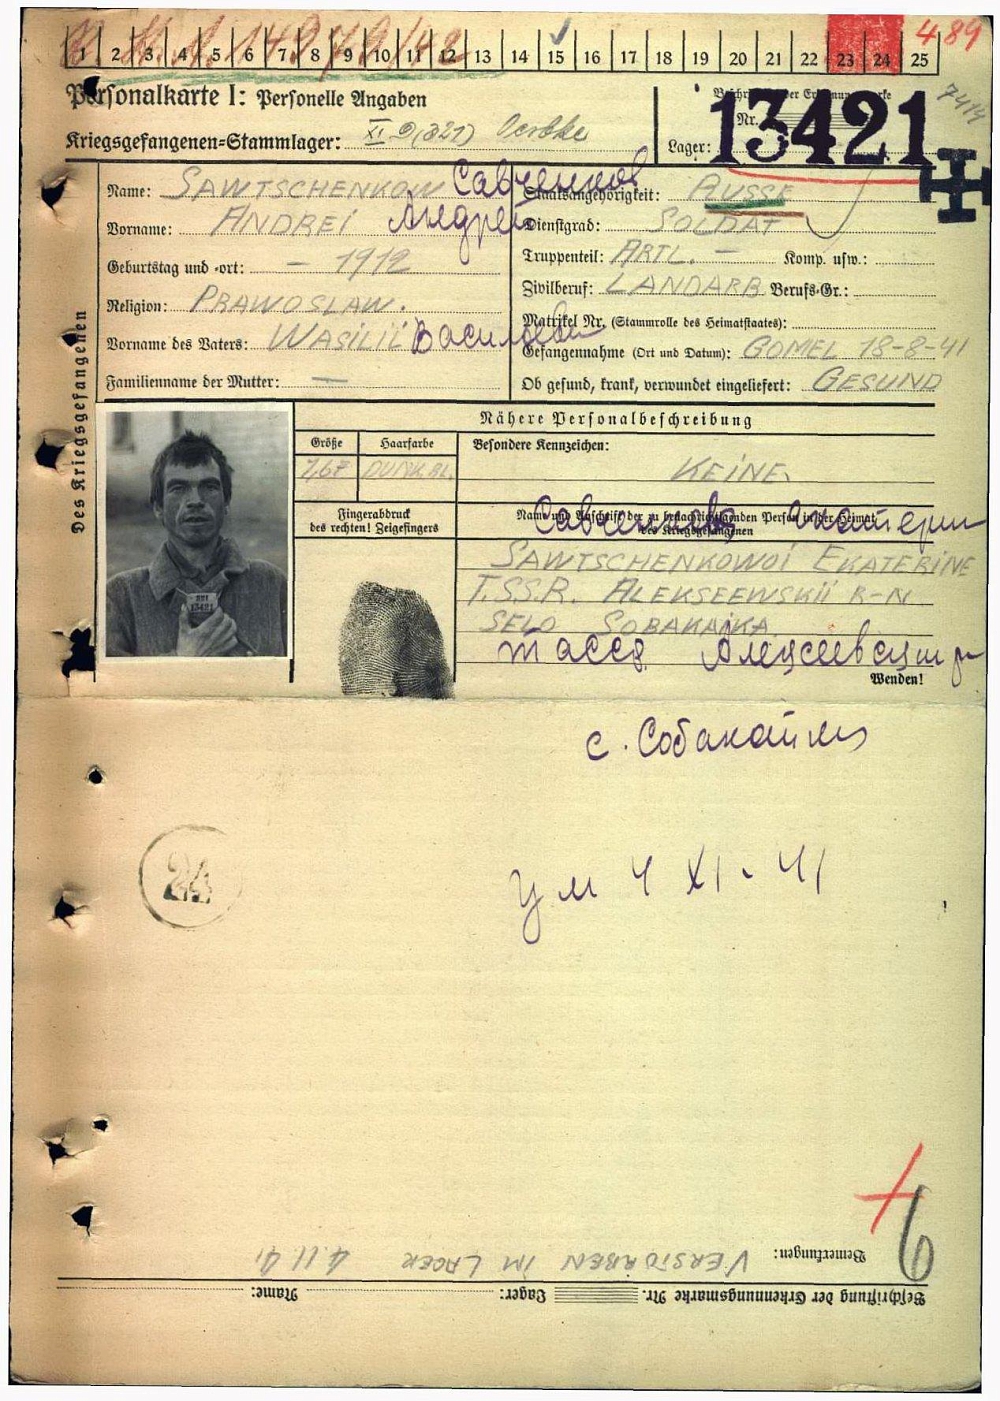 489
1 2 3 4 5 6 7 8 9 10 11 12 13 14 15 16 17 18 19 20 21 22 23 24 25
Personalkarte I: Personelle Angaben
Beschriftung der Erkennungsmarke
Nr. 13421
Kriegsgefangenen=Stammlager: XI D (321) Oerbke
Lager:
Des Kriegsgefangenen
Name: SAWTSCHENKOW Савченков
Vorname: ANDREI Андрей
Geburtstag und =ort: – 1912
Religion: PRAWOSLAW.
Vorname des Vaters: WASILII Василий
Familienname der Mutter: —
Staatsangehörigkeit: RUSSE
Dienstgrad: SOLDAT
Truppenteil: ARTL. – Komp. usw.:
Zivilberuf: LANDARB Berufs=Gr.:
Matrikel Nr. (Stammrolle des Heimatstaates):
Gefangennahme (Ort und Datum): GOMEL 18-8-41
Ob gesund, krank, verwundet eingeliefert: GESUND
Nähere Personalbeschreibung
Größe Haarfarbe Besondere Kennzeichen:
1,67 DUNKBL. KEINE
Fingerabdruck
des rechten! Zeigefingers
Name und Anschrift der zu benachrichtigenden Person in der Heimat
des Kriegsgefangenen
Савченкова
SAWTSCHENKOWOI EKATERINE
T.SSR. ALEKSEEWSKII R-N
SELO SOBAKAIKA
13421
ТАССР Алексеевский р
Wenden!
с. Собакайка
24
ум 4 XI. 41
6
Bemerkungen: VERSTORBEN IM LAGER 4.11.41
Beschriftung der Erkennungsmarke Nr. Lager: Name: